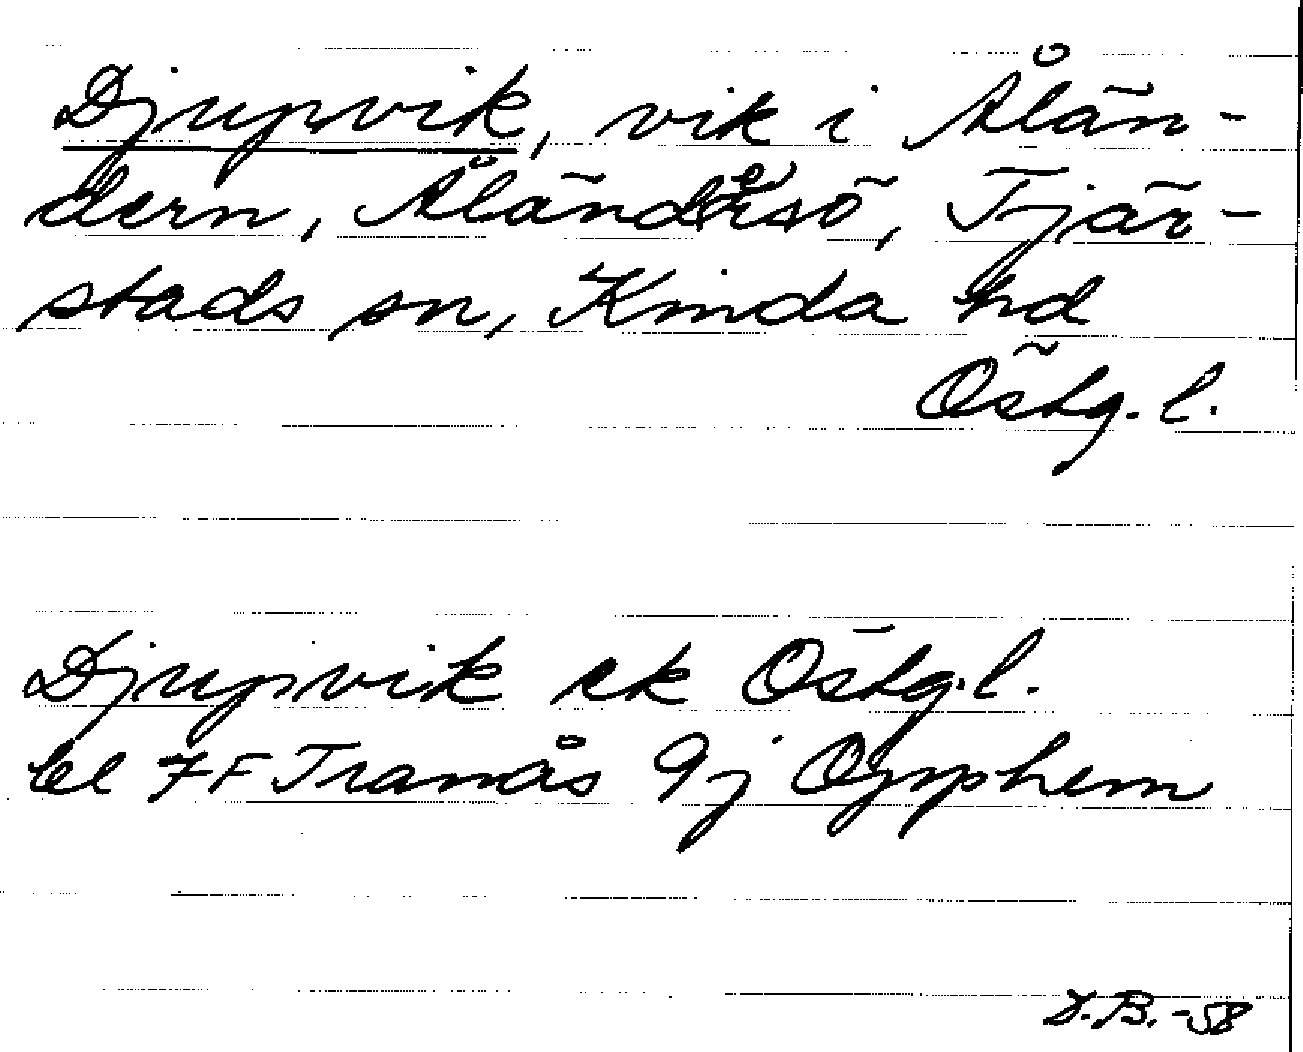 Djupvik, vik i Ålän-
dern, Åländersö, Tjär-
stads sn, Kinda hd
Östg. l.
Djupvik ek Östg. l.
bl 7F Tranås 9j Opphem
D.B. -58